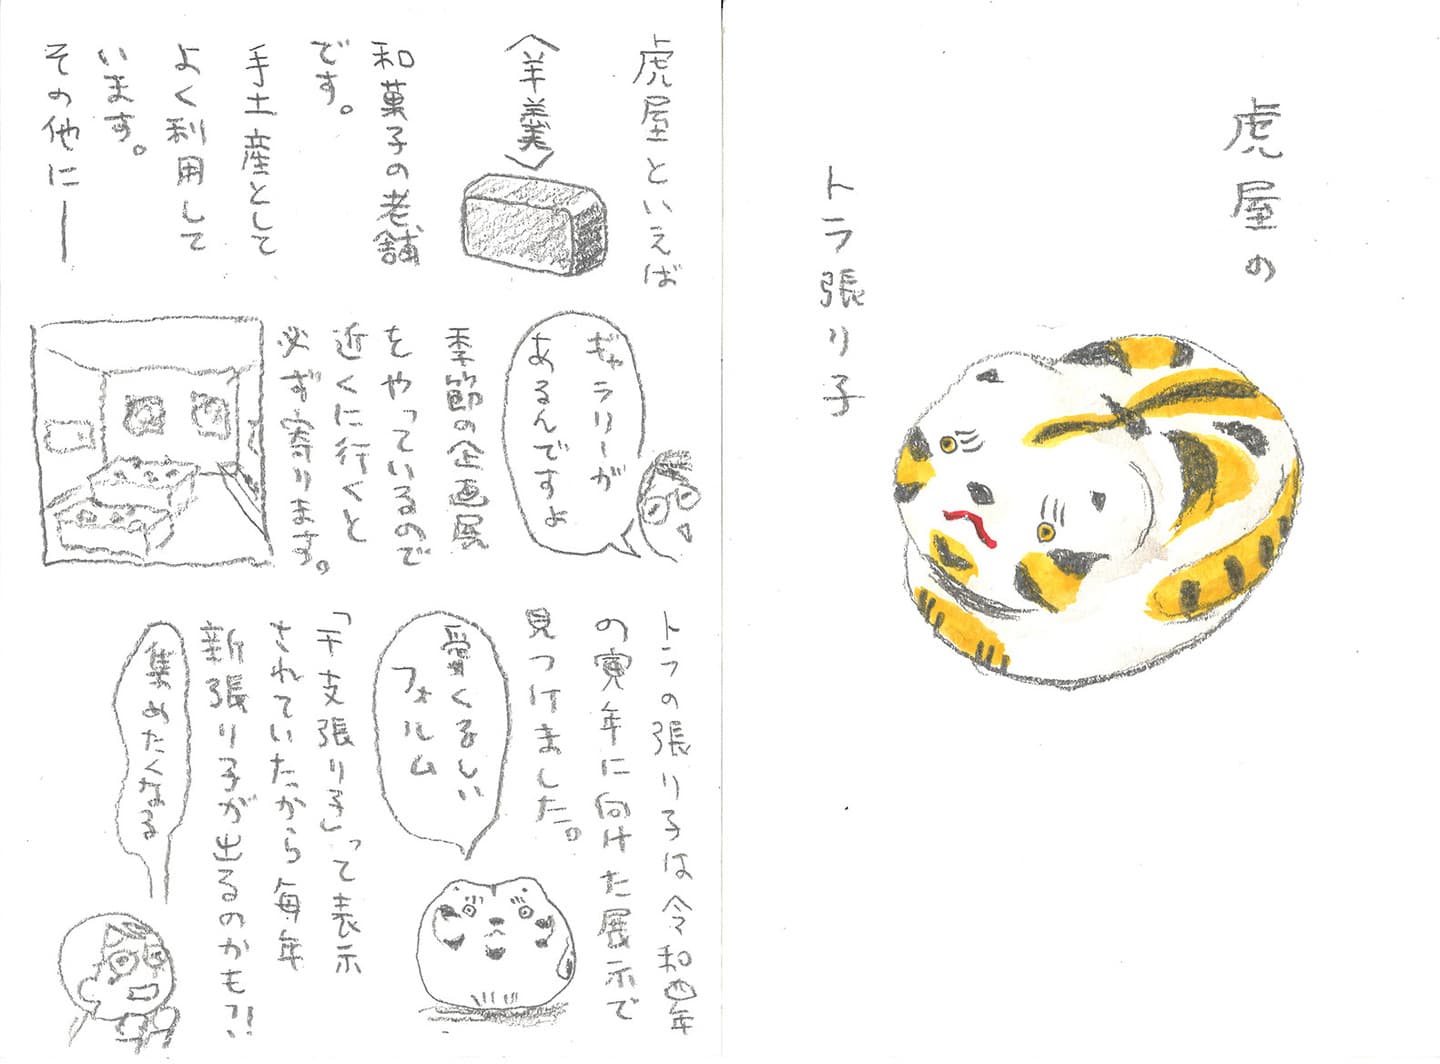 虎屋の
トラ張り子
虎屋といえば
〈羊羹〉
和菓子の老舗
です。
手土産として
よく利用して
います。
その他に――
ギャラリーが
あるんですよ
季節の企画展
をやっているので
近くに行くと
必ず寄ります。
トラの張り子は令和四年
の寅年に向けた展示で
見つけました。
愛くるしい
フォルム
「干支張り子」って表示
されていたから毎年
新張り子が出るのかも?!
集めたくなる